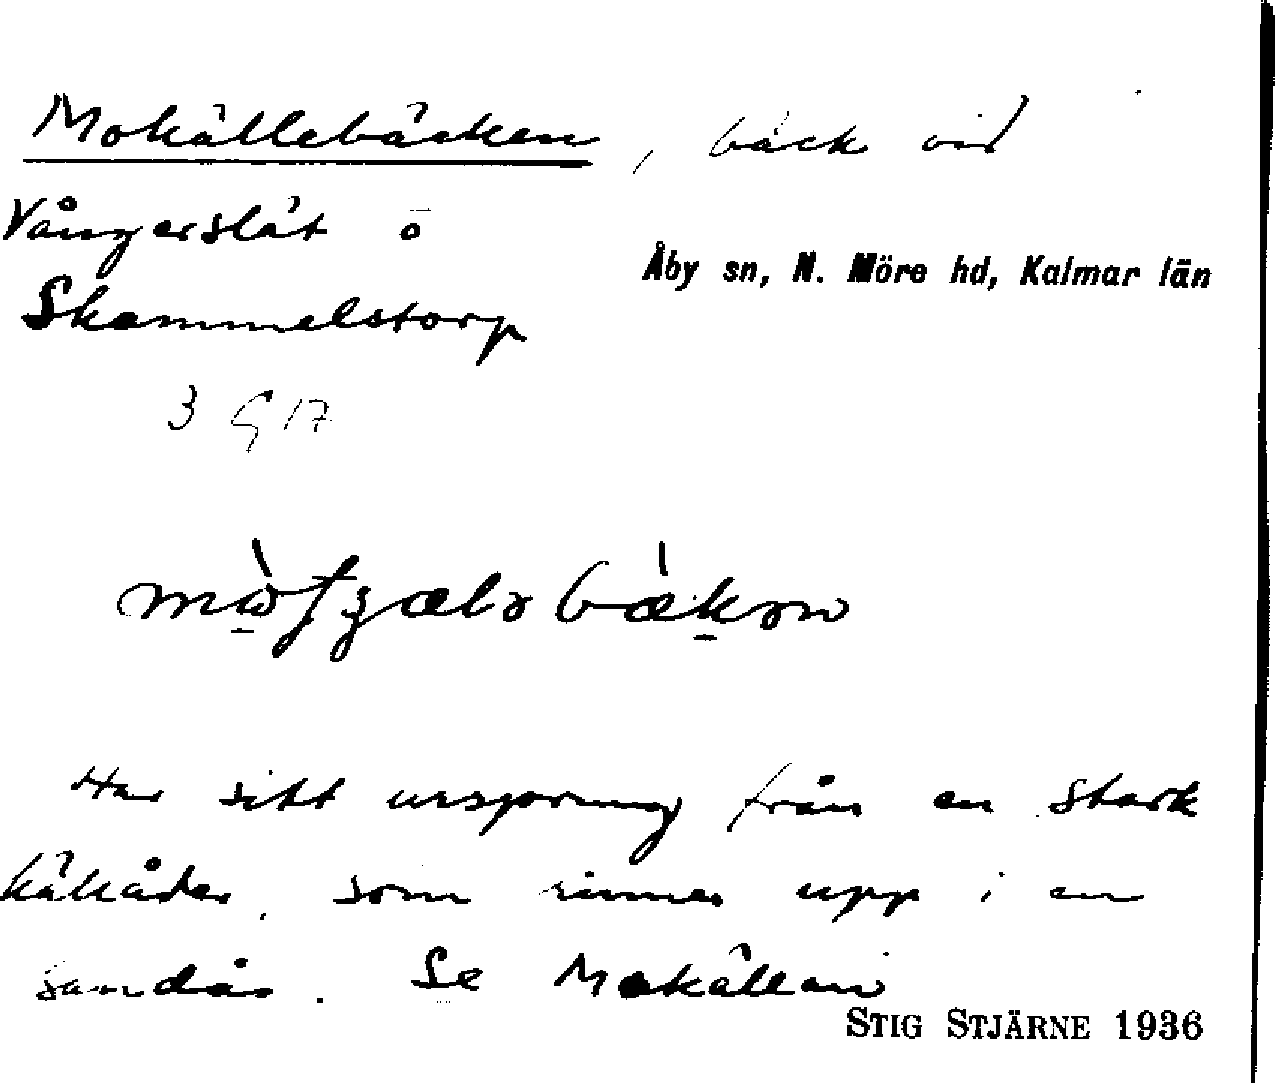 Mokällebäcken, bäck vid
Vångerslät o
Skammelstorp
Åby sn, N. Möre hd, Kalmar län
3 G 17
Har sitt ursprung från en stark
källåder, som rinner upp i en
sandås. Se Mokällan
STIG STJÄRNE 1936